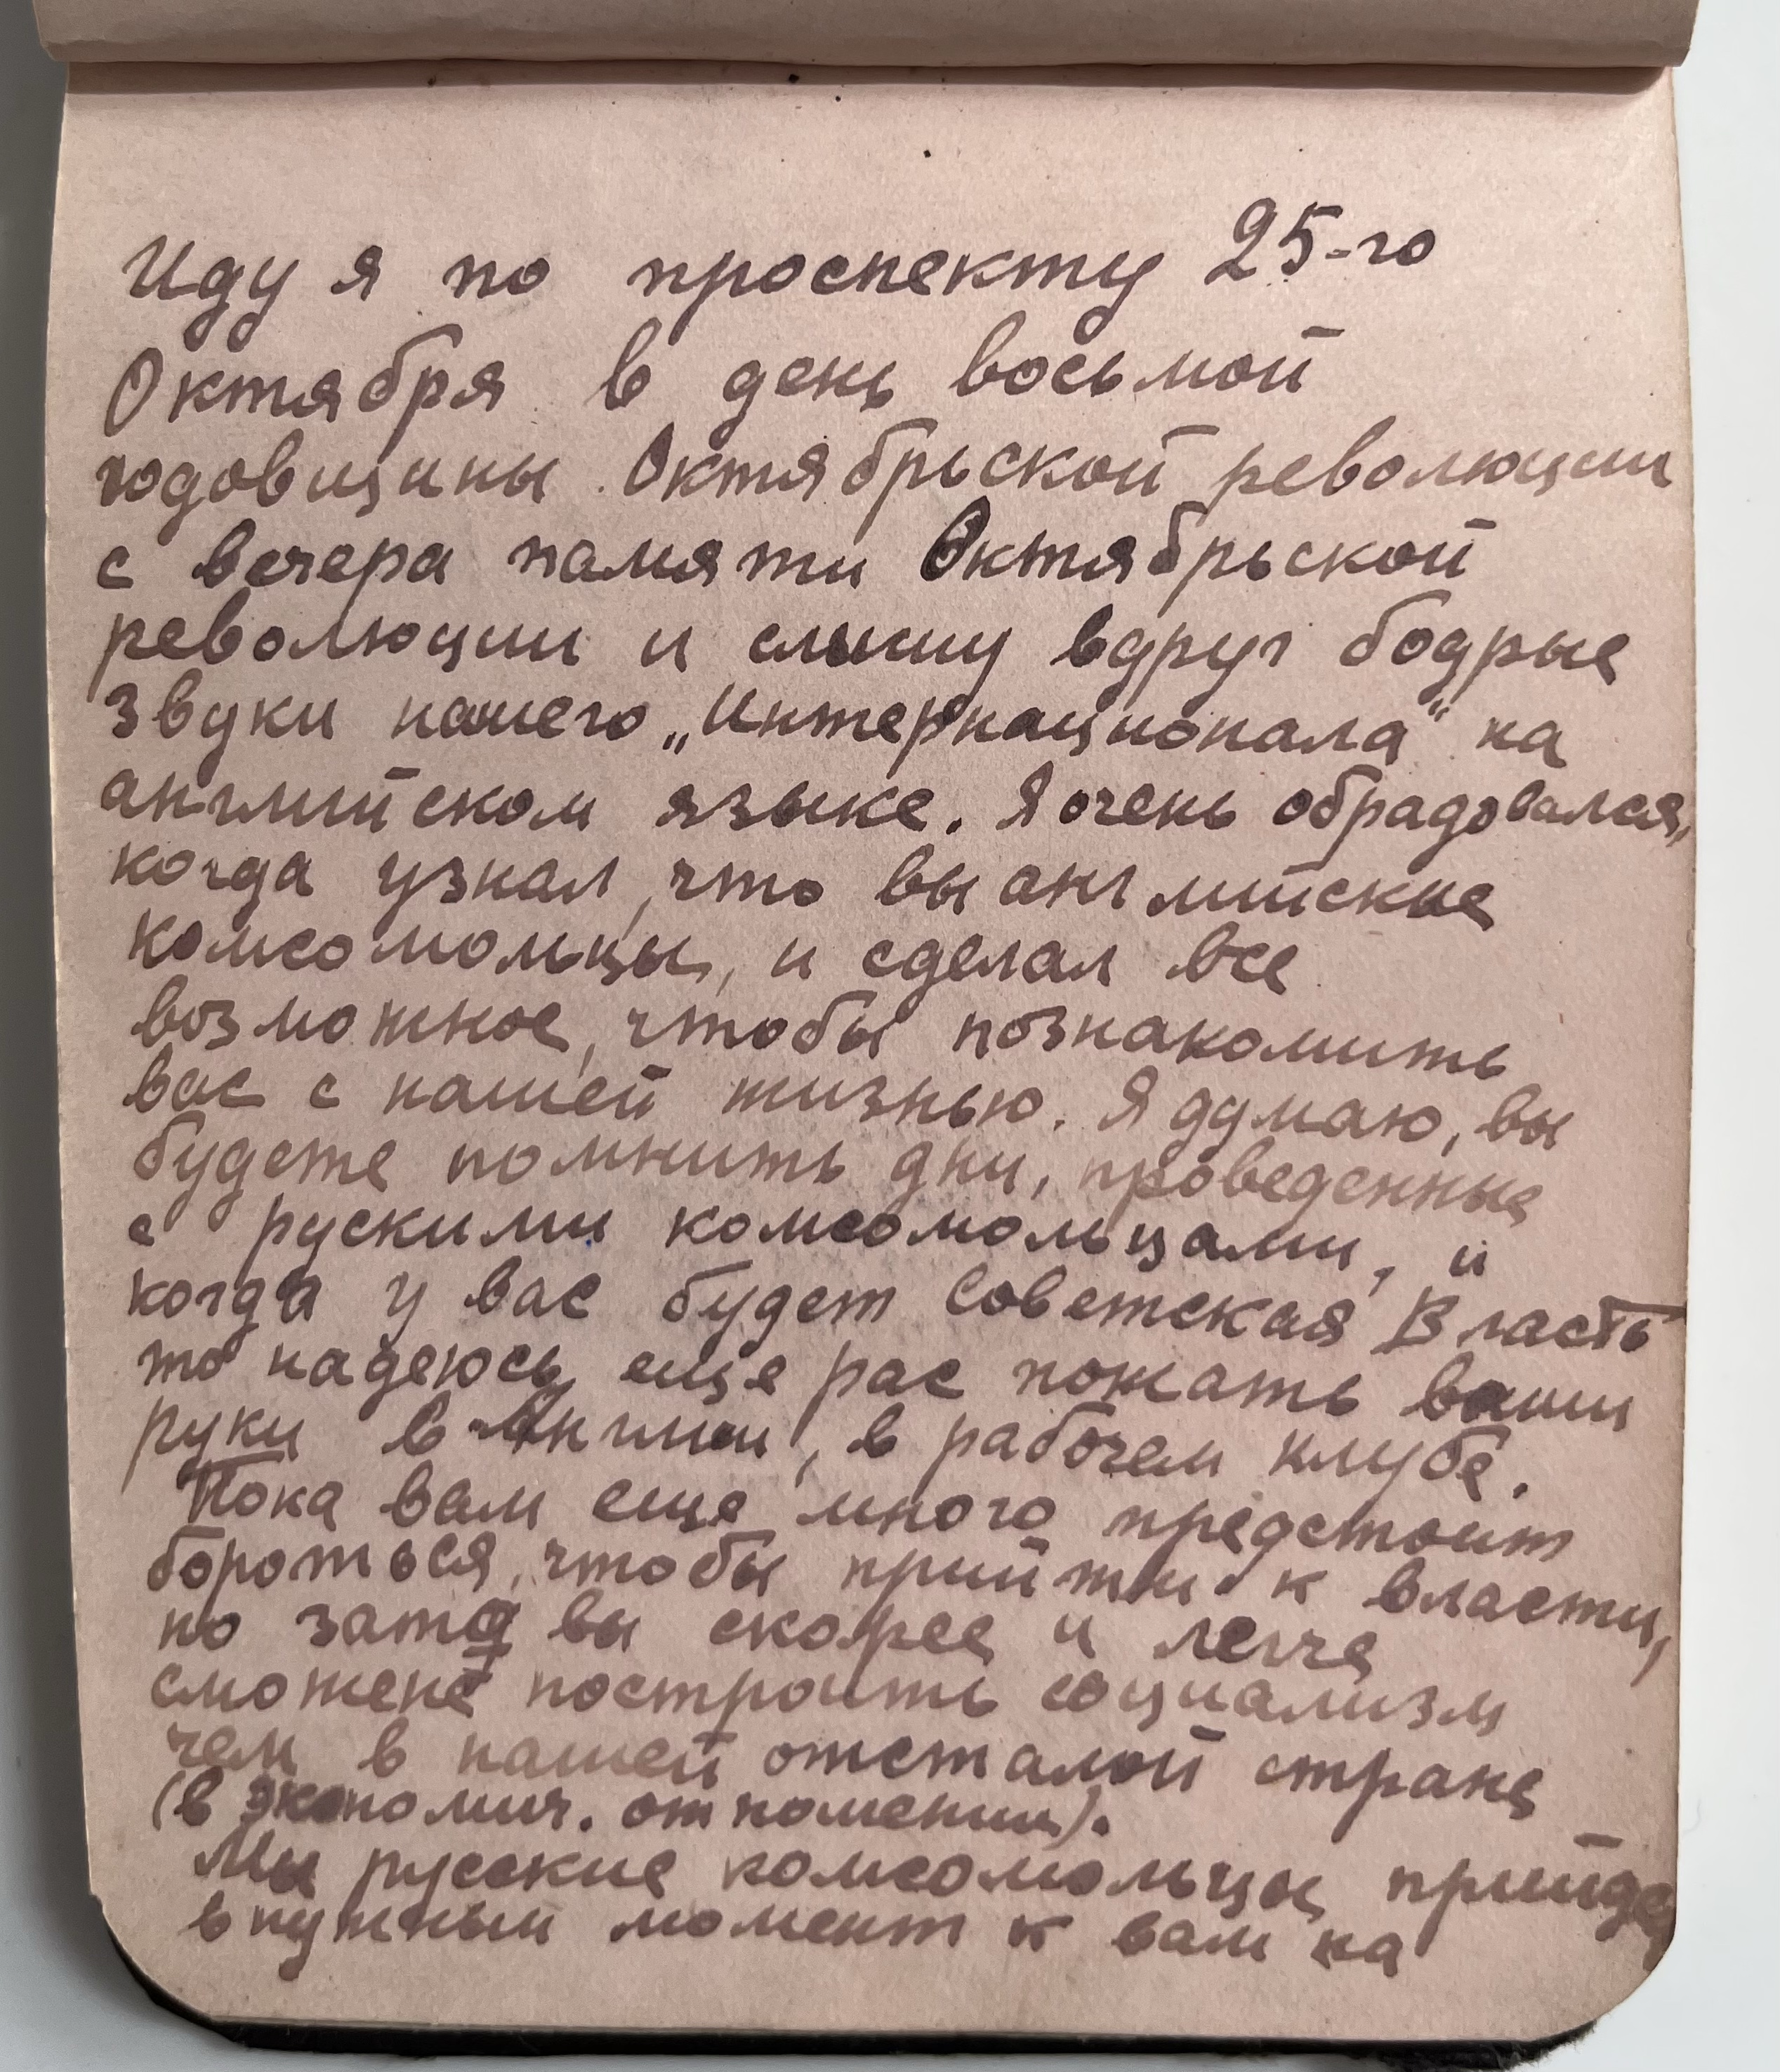 Иду я по проспекту 25-го
Октября в день восьмой
годовщины Октябрьской революции
с вечера памяти Октябрьской
революции и слышу вдруг бодрые
звуки нашего „Интернационала“ на
английском языке. Я очень обрадовался,
когда узнал, что вы английские
комсомольцы, и сделал все
возможное, чтобы познакомить
вас с нашей жизнью. Я думаю, вы
будете помнить дни, проведенные
с рускими комсомольцами, и
когда у вас будет Советская Власть
то надеюсь еще рас пожать ваши
руки в Англии, в рабочем клубе.
Пока вам еще много предстоит
бороться, чтобы прийти к власти,
но зато вы скорее и легче
сможете построить социализм
чем в нашей отсталой стране
(в экономич. отношении).
Мы русские комсомольцы прийде
в нужный момент к вам на